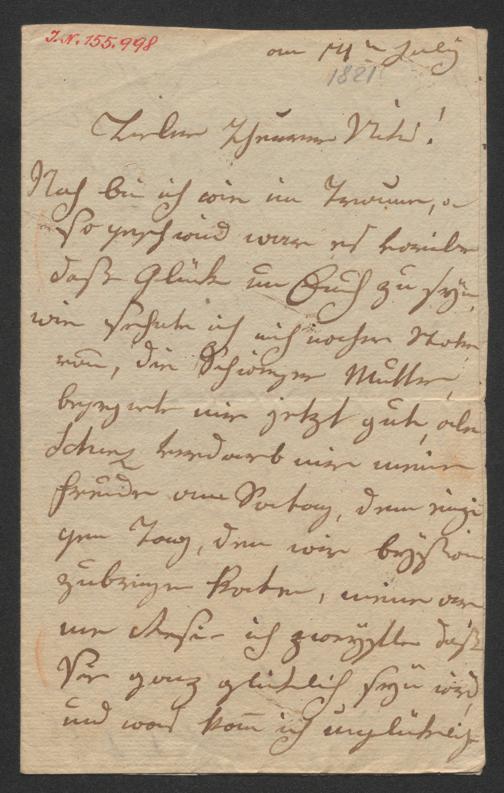 I.N. 155.998
am 14ten July
1821
Lieber theurer Vater!
Noch bin ich wie im Traume,
so geschwind war es vorüber
daß Glück um Euch zu seyn,
wie sehnte ich mich nacher
die Schwieger Mutter,
begegnete mir jetzt gut, aber
Schwez verdarb mir meine
Freude am Sontag, dem einzi
gen Tag, den wir beysam
zubringen konten, meine ar
me Resi ich zweyfle daß
Sie ganz glüklich seyn wird,
und was kann ich unglükliche